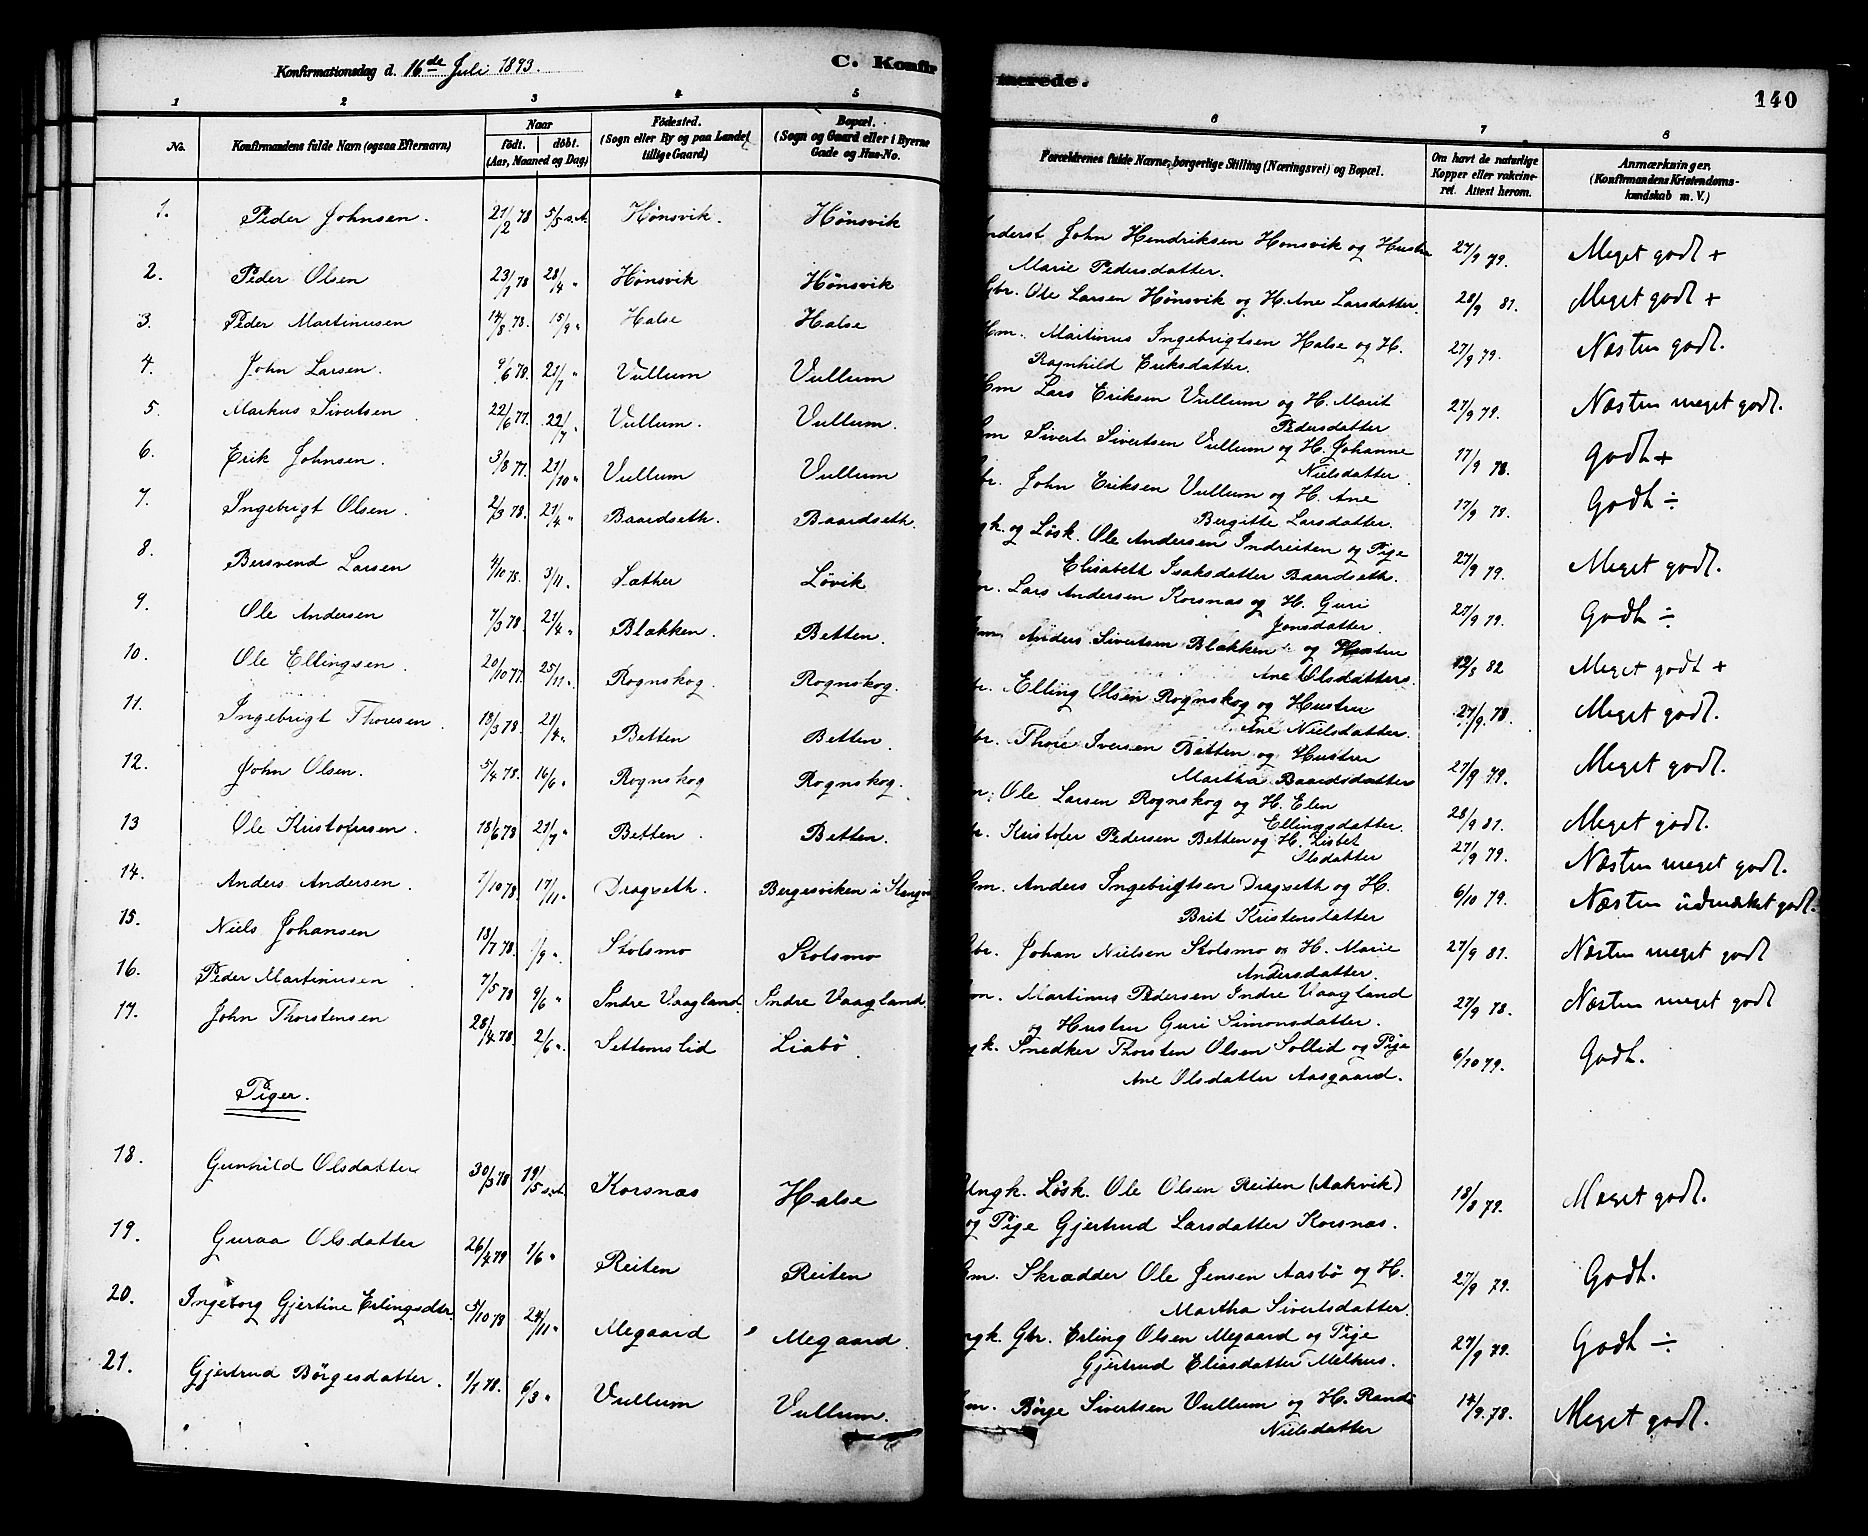 Konfirmationsdag d. 16de Juli 1893.
C. Konfirmerede.
140
1 2 3 4 5 6 7 8
No. Konfirmandens fulde Navn (ogsaa Efternavn) Naar født. døbt. (Aar, Maaned og Dag) Fødested. (Sogn eller By og paa Landet tillige Gaard) Bopæl. (Sogn og Gaard eller i Byerne Gade og Hus-No. Forældrenes fulde Navne, borgerlige Stilling (Næringsvei) og Bopæl. Om havt de naturlige Kopper eller vakcineret. Attest herom. Anmærkninger. (Konfirmandens Kristendomskundskab m. V.)
1. Peder Johnsen. 21/2 78 5/5 s.A. Hönsvik. Hönsvik John Hendriksen Hönsvik og Hustru 27/9 79. Meget godt +
Marie Pedersdatter.
2. Peder Olsen 23/1 78 28/4 " Hönsvik Hönsvik Gbr. Ole Larsen Hönsvik og H. Ane Larsdatter. 28/9 81. Meget godt +
3. Peder Martinusen 14/8 78. 15/9 " Halse Halse Hm. Martinus Ingebrigtsen Halse og H. 27/9 79. Næsten godt.
Ragnhild Eriksdatter.
4. John Larsen. 9/6 78. 21/7 " Vullum Vullum Hm Lars Eriksen Vullum og H. Marit 27/9 79. Næsten meget godt.
Pedersdatter
5. Markus Sivertsen 22/6 77. 22/7 " Vullum. Vullum. Sivert Sivertsen Vullum og H. Johanne 17/9 78. Godt +
Nielsdatter.
6. Erik Johnsen. 3/8 77. 21/10 " Vullum Vullum br. John Eriksen Vullum og H. Ane 17/9 78. Godt ÷
Bergitte Larsdatter.
7. Ingebrigt Olsen. 2/3 78. 21/4 " Baardseth. Baardseth. gk. og Løsk. Ole Andersen Indreiten og Pige 27/9 79. Meget godt.
Elisabeth Isaksdatter Baardseth.
8. Bersvend Larsen 4/10 78. 3/11. Sæther Lövik Lars Andersen Korsnæs og H. Guri 27/9 79. Godt ÷
Jonsdatter.
9. Ole Andersen 7/3 78. 21/4 " Blækken. Betten. Anders Sivertsen Blækken og Hustru 12/8 82 Meget godt +
Ane Olsdatter.
10. Ole Ellingsen. 20/10 77. 25/11 " Rognskog. Rognskog. br. Elling Olsen Rognskog og Hustru 27/9. 78. Meget godt.
Ane Nielsdatter.
11. Ingebrigt Thoresen. 13/3 78. 21/4 " Betten Betten. br. Thore Iversen Betten og Hustru 27/9 79. Meget godt.
Martha Baardsdatter
12. John Olsen. 5/4 78. 16/6 " Rognskog Rognskog. Ole Larsen Rognskog og H. Elen 28/9 81. Meget godt.
Ellingsdatter.
13 Ole Kristofersen. 18/6 78 21/7 " Betten. Betten. br. Kristofer Pedersen Betten og H. Lisbet 27/9 79. Næsten meget godt.
Olsdatter
14. Anders Andersen. 1/10 78. 17/11 " Dragseth. Bergesviken i Stangv Anders Ingebrigtsen Dragseth og H. 6/10 79. Næsten udmærket godt.
Brit Kristensdatter
15. Niels Johansen 18/7 78. 1/9 " Stolsmo Stolsmo Gbr. Johan Nielsen Stolsmo og H. Marie 27/9 81. Næsten meget godt
Andersdatter.
16. Peder Martinusen 7/5 78 9/6 " Indre Vaagland. Indre Vaagland Martinus Pedersen Indre Vaagland 27/9 78. Næsten meget godt
og Hustru Guri Simonsdatter.
17. John Thorstensen 28/4 78. 2/6 ". Settemslid Liabö. gk. Snedker Thorsten Olsen Sollid og Pige 6/10 79. Godt.
Ane Olsdatter Aasgaard.
Piger.
18. Gunhild Olsdatter 30/3 78 19/5 s.A. Korsnæs Halse Ungk. Løsk. Ole Olsen Reiten (Aakvik) 18/8 79. Meget godt.
og Pige Gjertrud Larsdatter Korsnæs.
19. Guraa Olsdatter 26/4 79 1/6 " Reiten Reiten Skrædder Ole Jensen Aasbö og H. 27/9 79. Godt.
Martha Sivertsdatter.
20. Ingeborg Gjertine Erlingsdtr. 5/10 78 24/11 " Megaard Megaard. ngk. Gbr. Erling Olsen Megaard og Pige 27/9 79. Godt ÷
Gjertrud Eliasdatter Melhus.
21. Gjertrud Börgesdatter. 1/1 78. 6/3 " Vullum Vullum. Börge Sivertsen Vullum og H. Randi 14/9. 78. Meget godt.
Nielsdatter